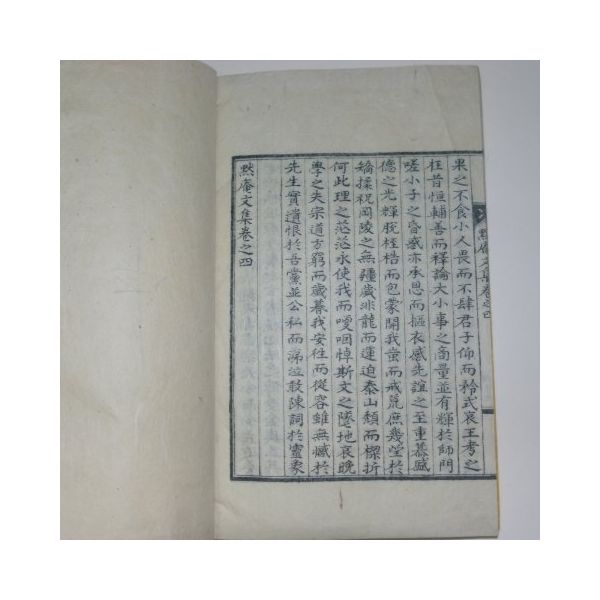 果之不食小人畏而不肆君子仰而矜式哀王考之
枉昔恒輔善而釋論大小事之商量並有輝於師門
嗟小子之昏惑亦承恩而摳衣感先誼之至重慕盛
德之光輝脫桎梏而包蒙開我蚩而戒荒庶幾望於
矯揉祝岡陵之無疆歲非龍而運迫泰山頹而樑折
何此理之茫茫永使我而嗳咽悼斯文之墜地哀晚
學之失宗道方窮而歲暮我安往而從容雖無憾於
先生實遺恨於吾黨並公私而涕泣敢陳詞於靈象
默庵文集卷之四
默庵文集卷之四